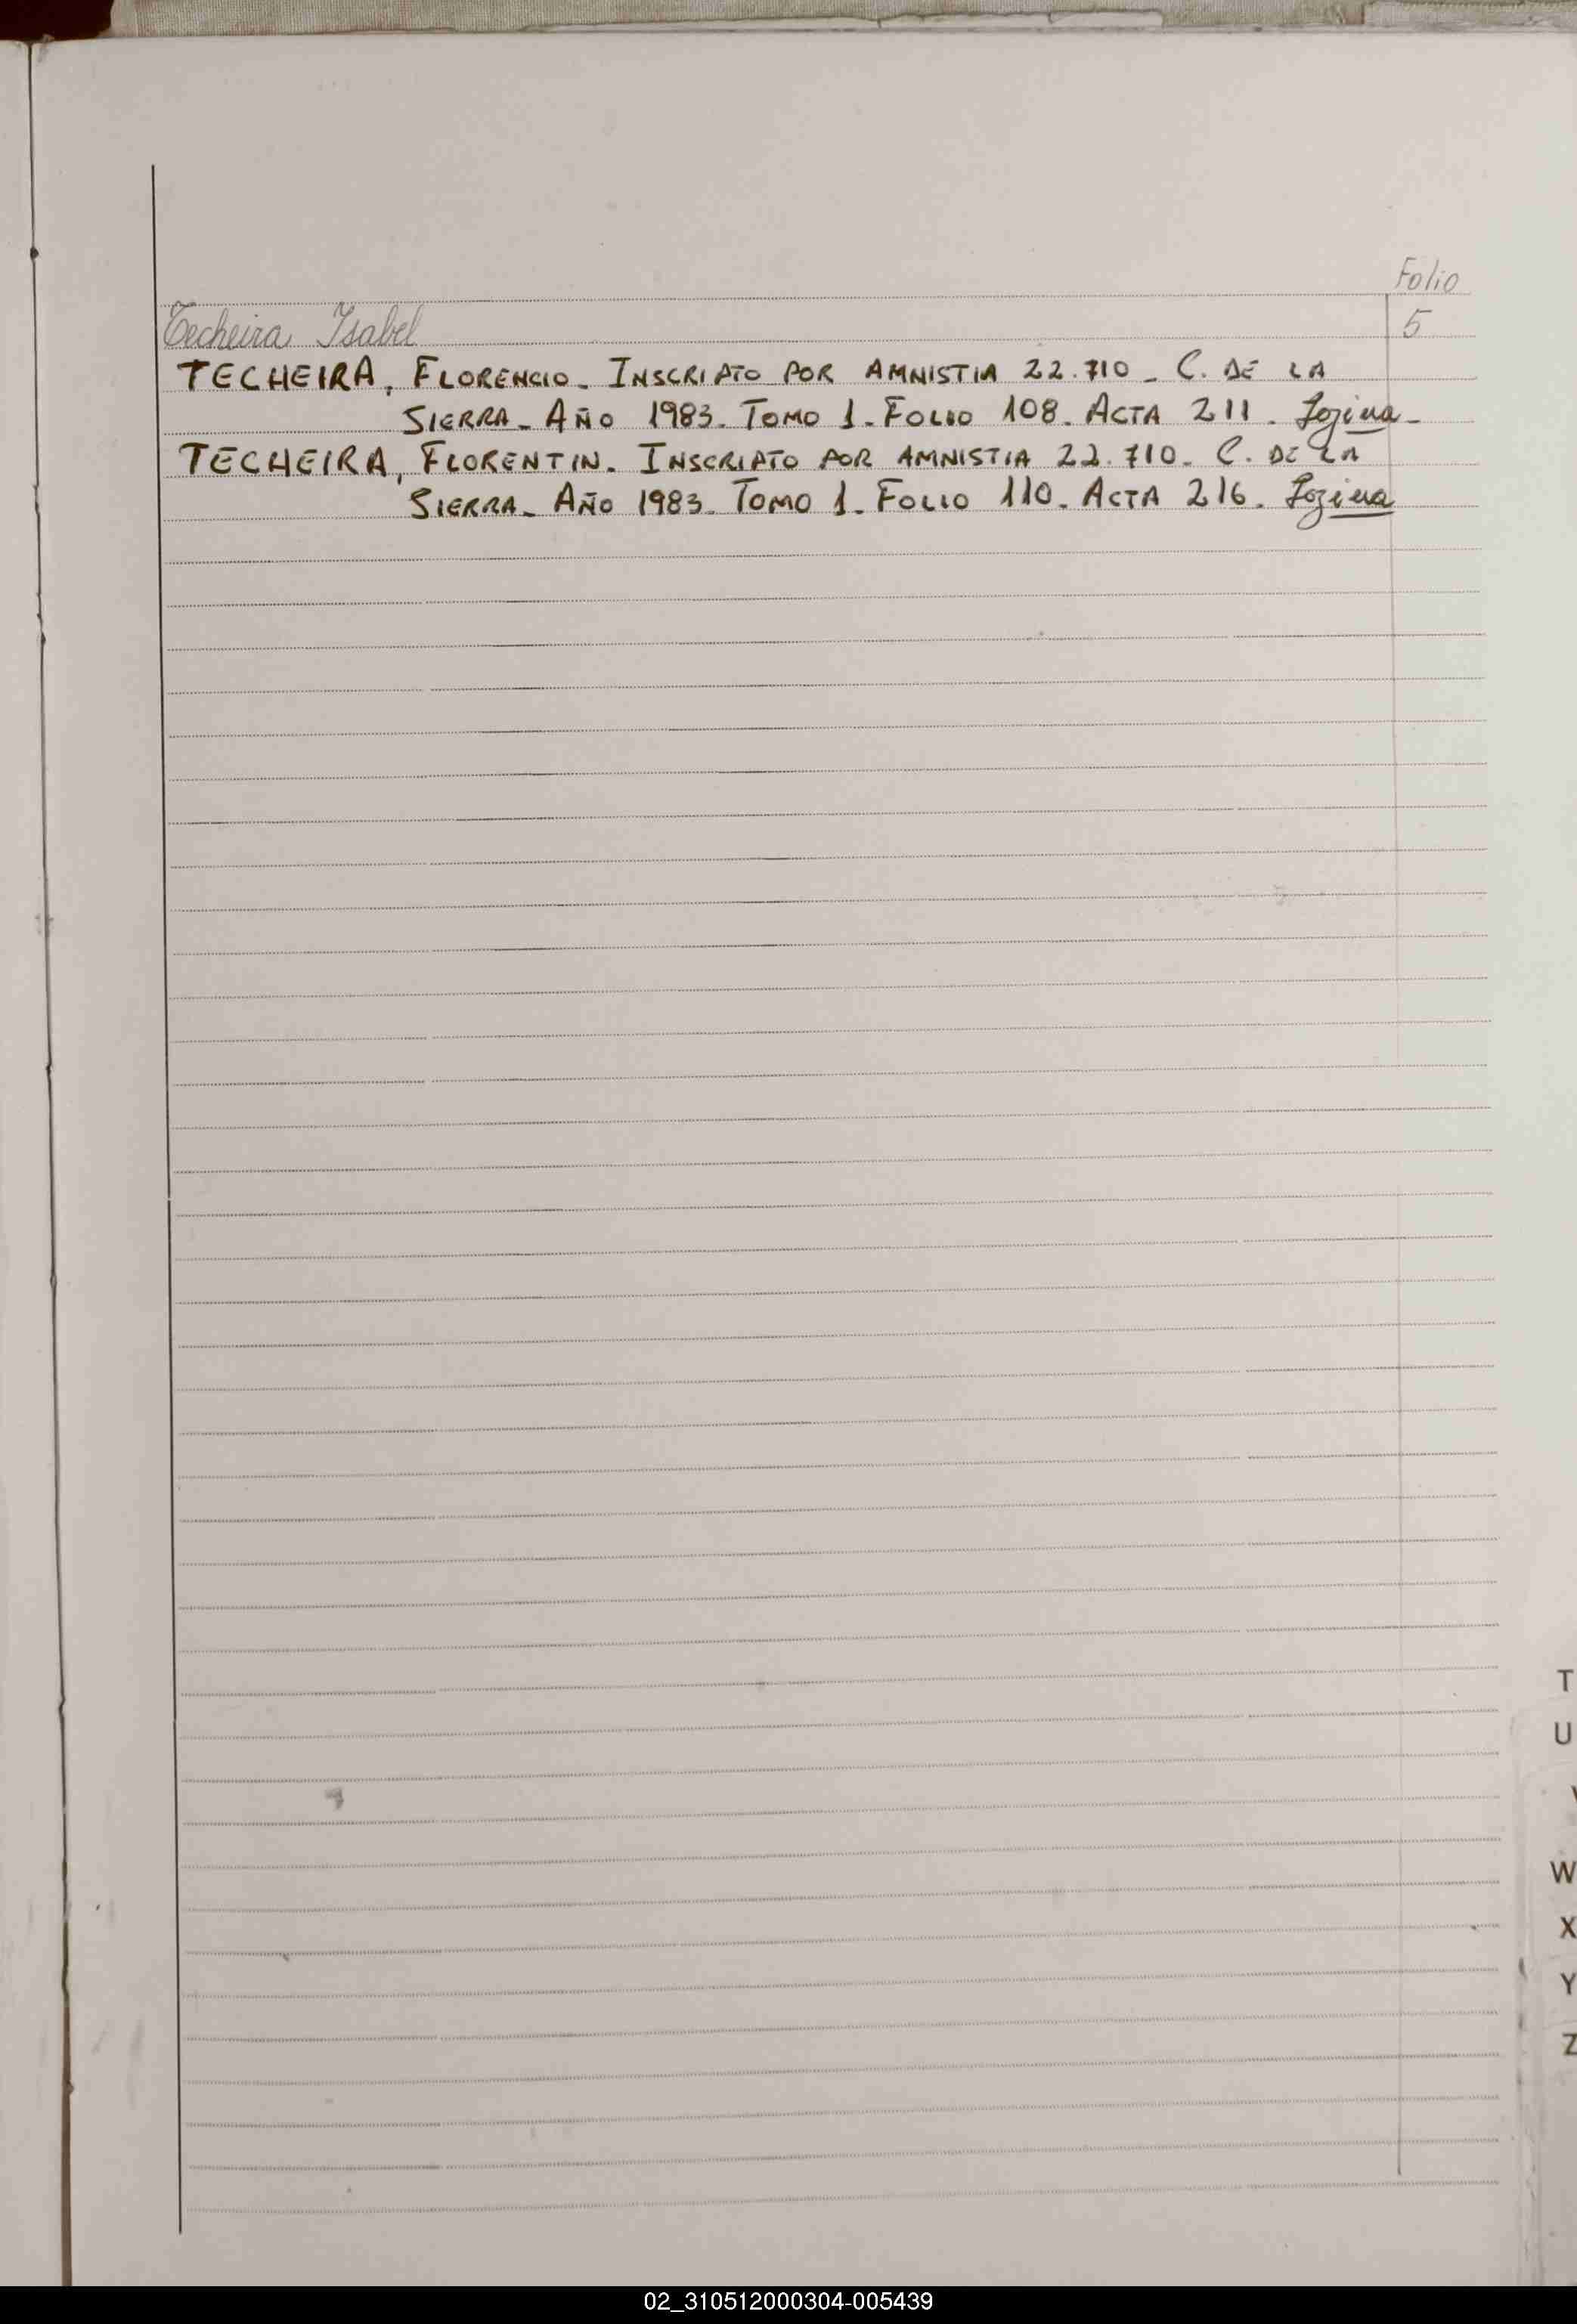 Folio
Techeira Isabel 5
TECHEIRA, FLORENCIO. INSCRIPTO POR AMNISTIA 22.710 - C. DE LA
SIERRA - AÑO 1983. TOMO 1. FOLIO 108. ACTA 211.
TECHEIRA, FLORENTIN. INSCRIPTO POR AMNISTIA 22.710. C. DE LA
SIERRA - AÑO 1983. TOMO 1. FOLIO 110. ACTA 216.
T
U
W
X
Y
Z
02_310512000304-005439